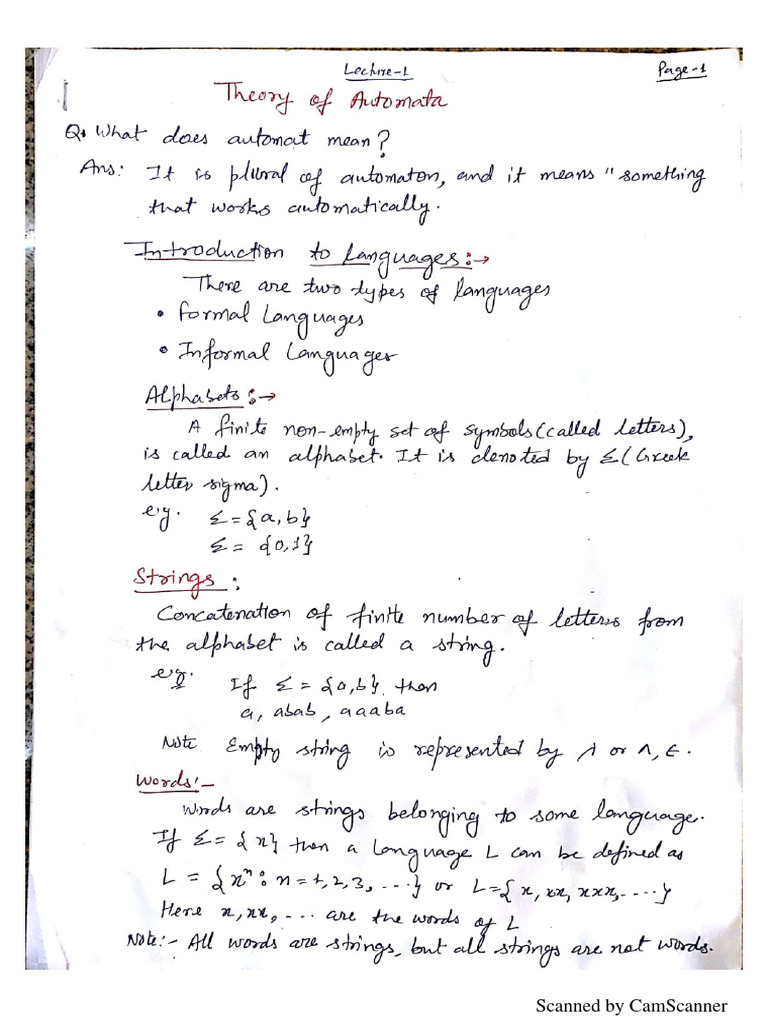 Lecture-1
Page-1
Theory of Automata
Q. What does automat mean?
Ans: It is plural of automaton, and it means "something
that works automatically.
Introduction to Languages:→
There are two types of languages
• Formal Languages
• Informal Languages
Alphabets:→
A finite non-empty set of symbols(called letters),
is called an alphabet. It is denoted by Σ(Greek
letter sigma).
e.g. Σ={a,b}
Σ= {0,1}
Strings:
Concatenation of finite number of letters from
the alphabet is called a string.
e.g. If Σ = {a,b} then
a, abab, aaaba
Note Empty string is represented by λ or Λ, ϵ.
Words:-
Words are strings belonging to some language.
If Σ= {x} then a language L can be defined as
L = {xⁿ: n=1,2,3,....} or L={x, xx, xxx,....}
Here x, xx, ... are the words of L
Note:- All words are strings, but all strings are not words.
Scanned by CamScanner